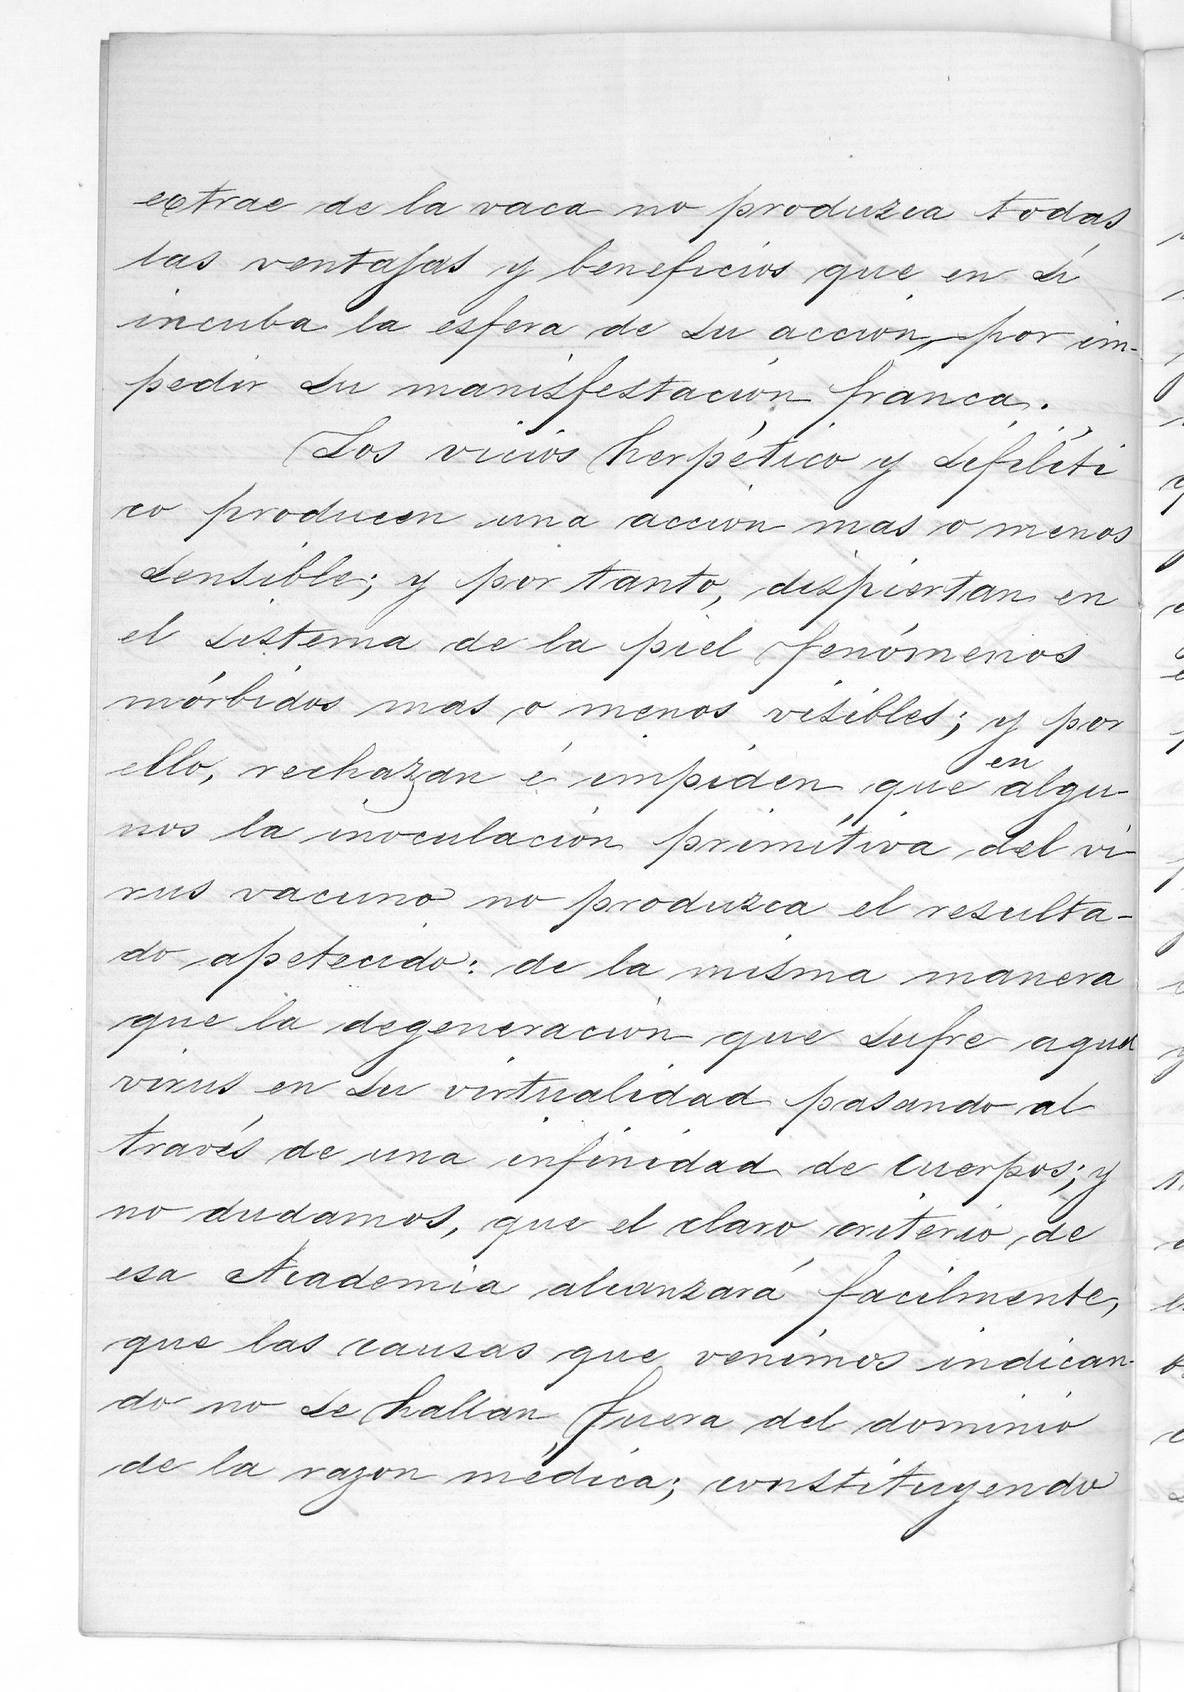 extrae de la vaca no produzca todas
las ventajas y beneficios que en sí
incuba la esfera de su accion, por im-
pedir su manisfestacion franca.
Los vicios herpético y sifilíti
co producen una accion mas o menos
sensible; y por tanto, dispiertan en
el sistema de la piel fenómenos
mórbidos mas o menos visibles; y por
ello, rechazan é impiden que en algu-
nos la inoculacion primitiva del vi-
rus vacuno no produzca el resulta-
do apetecido: de la misma manera
que la degeneracion que sufre aquel
virus en su virtualidad pasando al
través de una infinidad de cuerpos; y
no dudamos, que el claro criterio de
esa Academia alcanzará facilmente,
que las causas que venimos indican-
do no se hallan fuera del dominio
de la razon médica; constituyendo